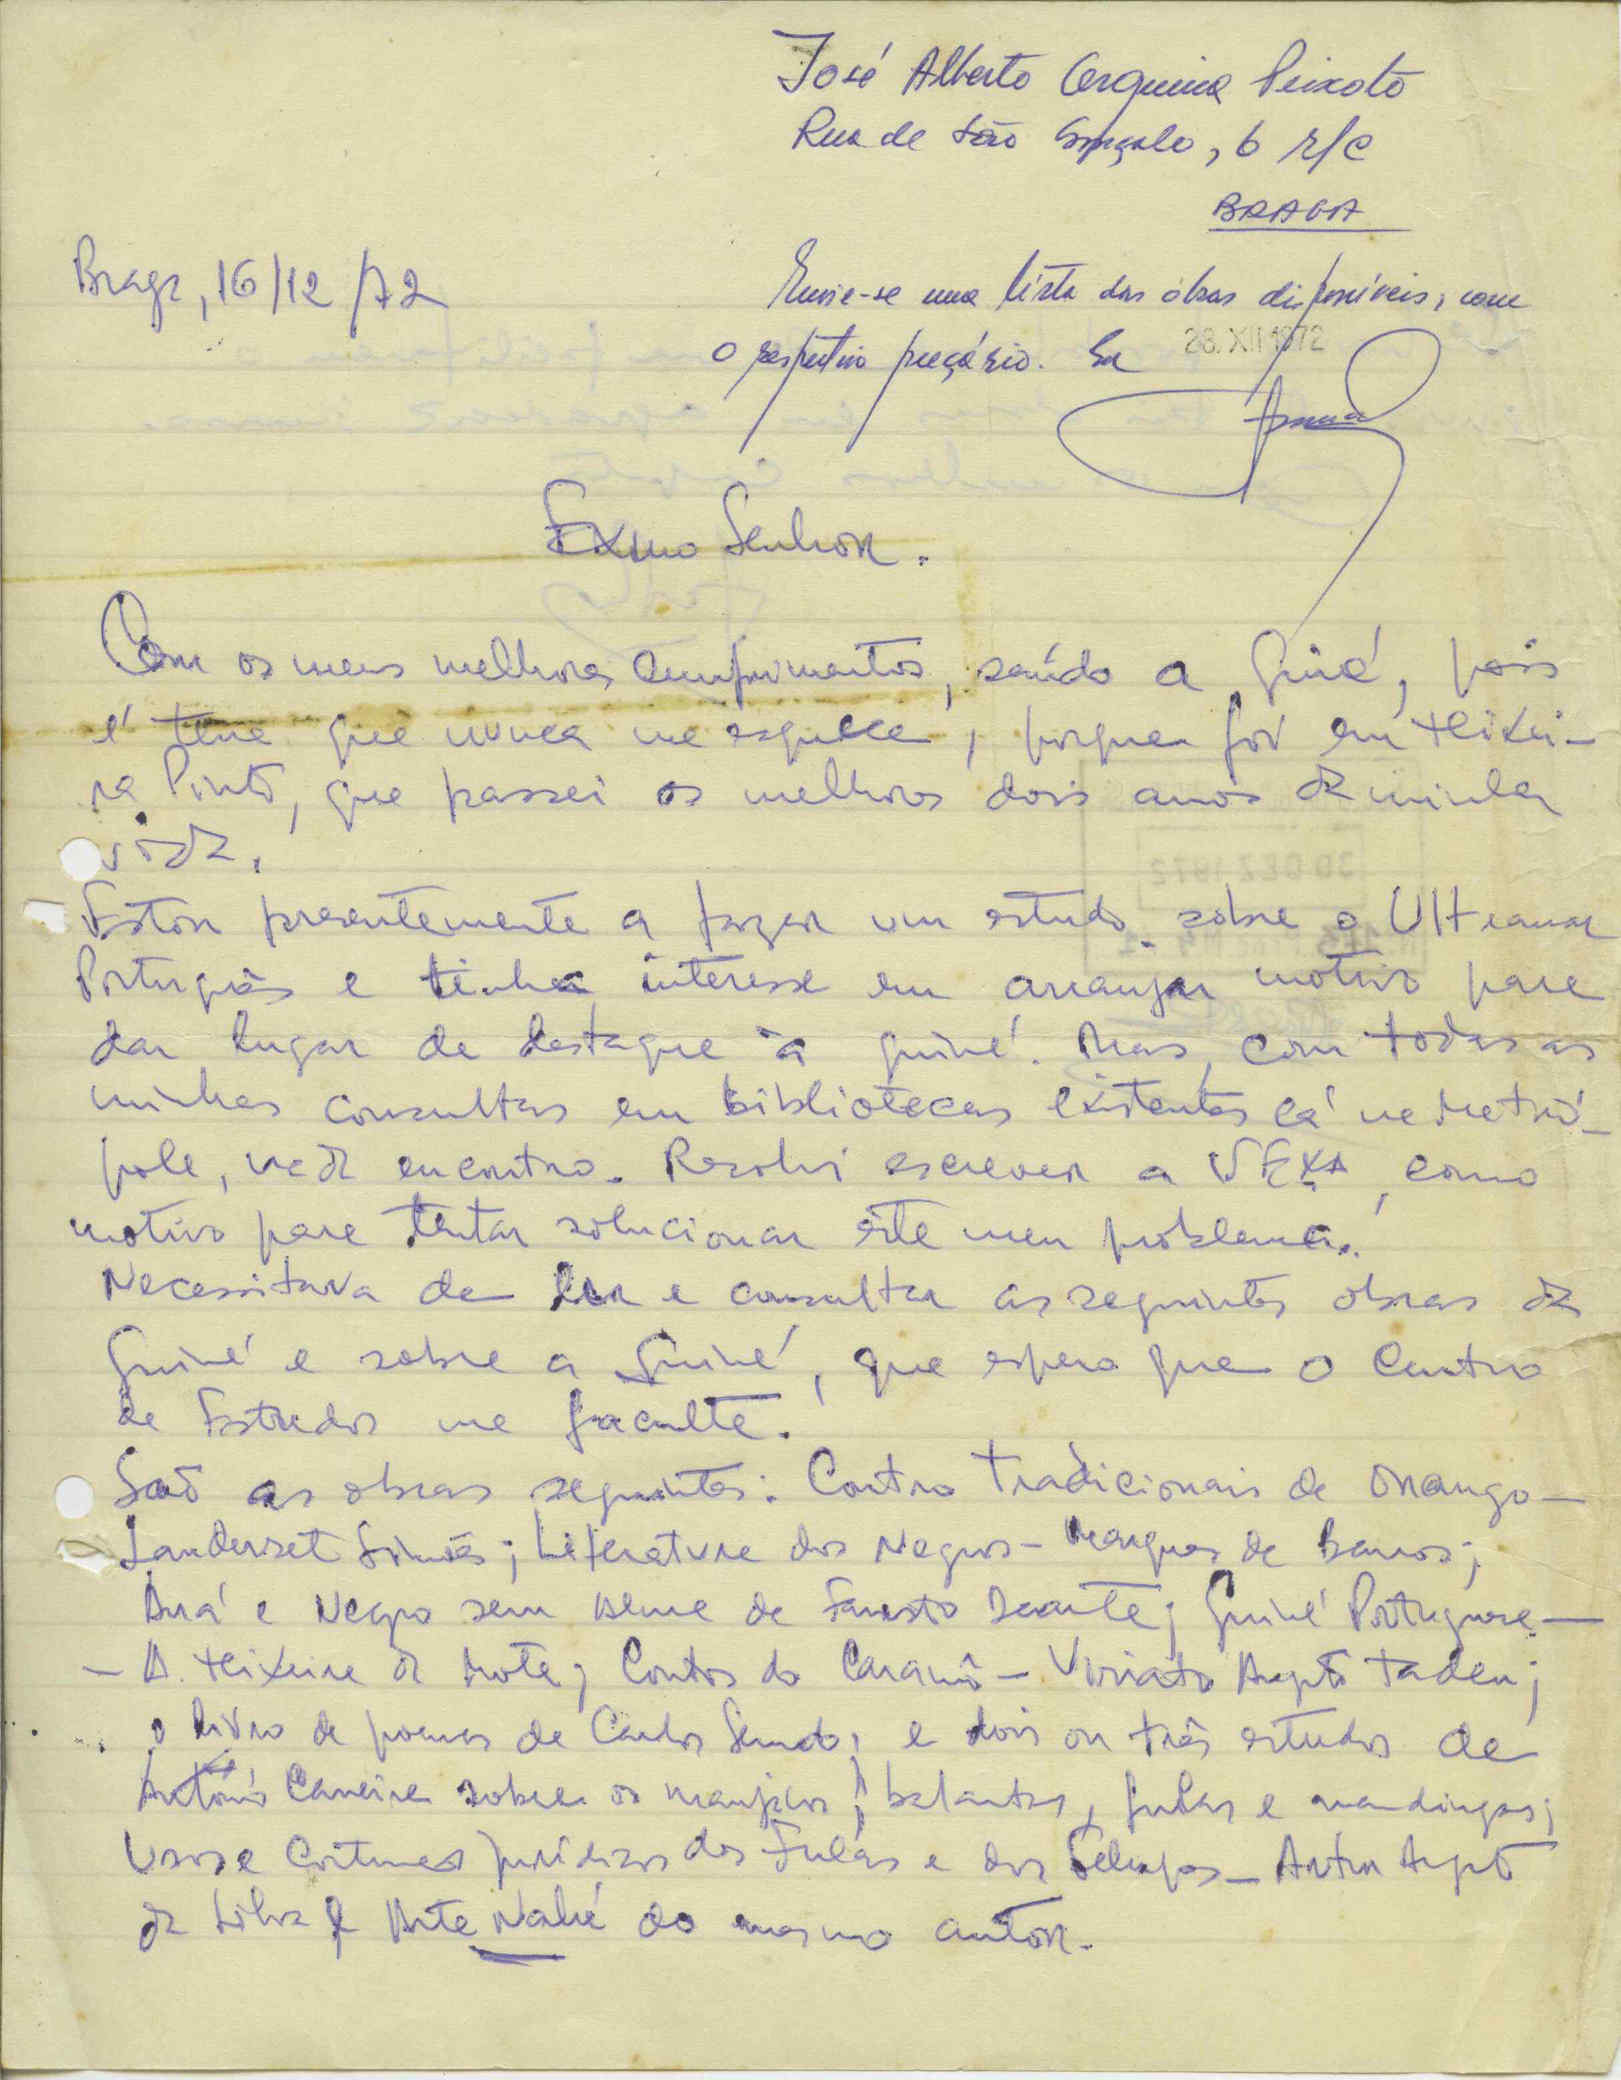 José Alberto Cerqueira Peixoto
Rua de São Gonçalo, 6 r/c
BRAGA
Braga, 16/12/72
Envie-se uma lista das obras disponíveis, com
o respectivo preçário.
28. XII 1972
Exmo Senhor.
Com os meus melhores cumprimentos, saúdo a Guiné, pois
é terra que nunca me esquece, porque foi em teixei-
ra Pinto, que passei os melhores dois anos da minha
vida.
Estou presentemente a fazer um estudo sobre o Ultramar
Português e tinha interesse em arranjar motivo para
dar lugar de destaque à guiné. Mas, com todas as
minhas consultas em bibliotecas existentes cá na Metró-
pole, nada encontro. Resolvi escrever a V. EXA, como
motivo para tentar solucionar este meu problema.
Necessitava de ler e consultar as seguintes obras da
Guiné e sobre a Guiné, que espero que o Centro
de Estudos me faculte.
São as obras seguintes: Contos tradicionais de
Landerset Simões; Literatura dos Negros - Marques de Barros;
Auá e Negro sem alma de Fausto Duarte; Guiné Portuguesa -
- A. teixeira da Mota; Contos do Caramô - Viriato Augto tadeu;
o livro de poemas de Carlos Semedo; e dois ou três estudos de
António Carreira sobre os manjacos, balantas, fulas e mandingas;
Usos e Costumes jurídicos dos Fulas e dos Felupes - Artur Augto
da Silva e Arte Nalú do mesmo autor.
30 DEZ 1972